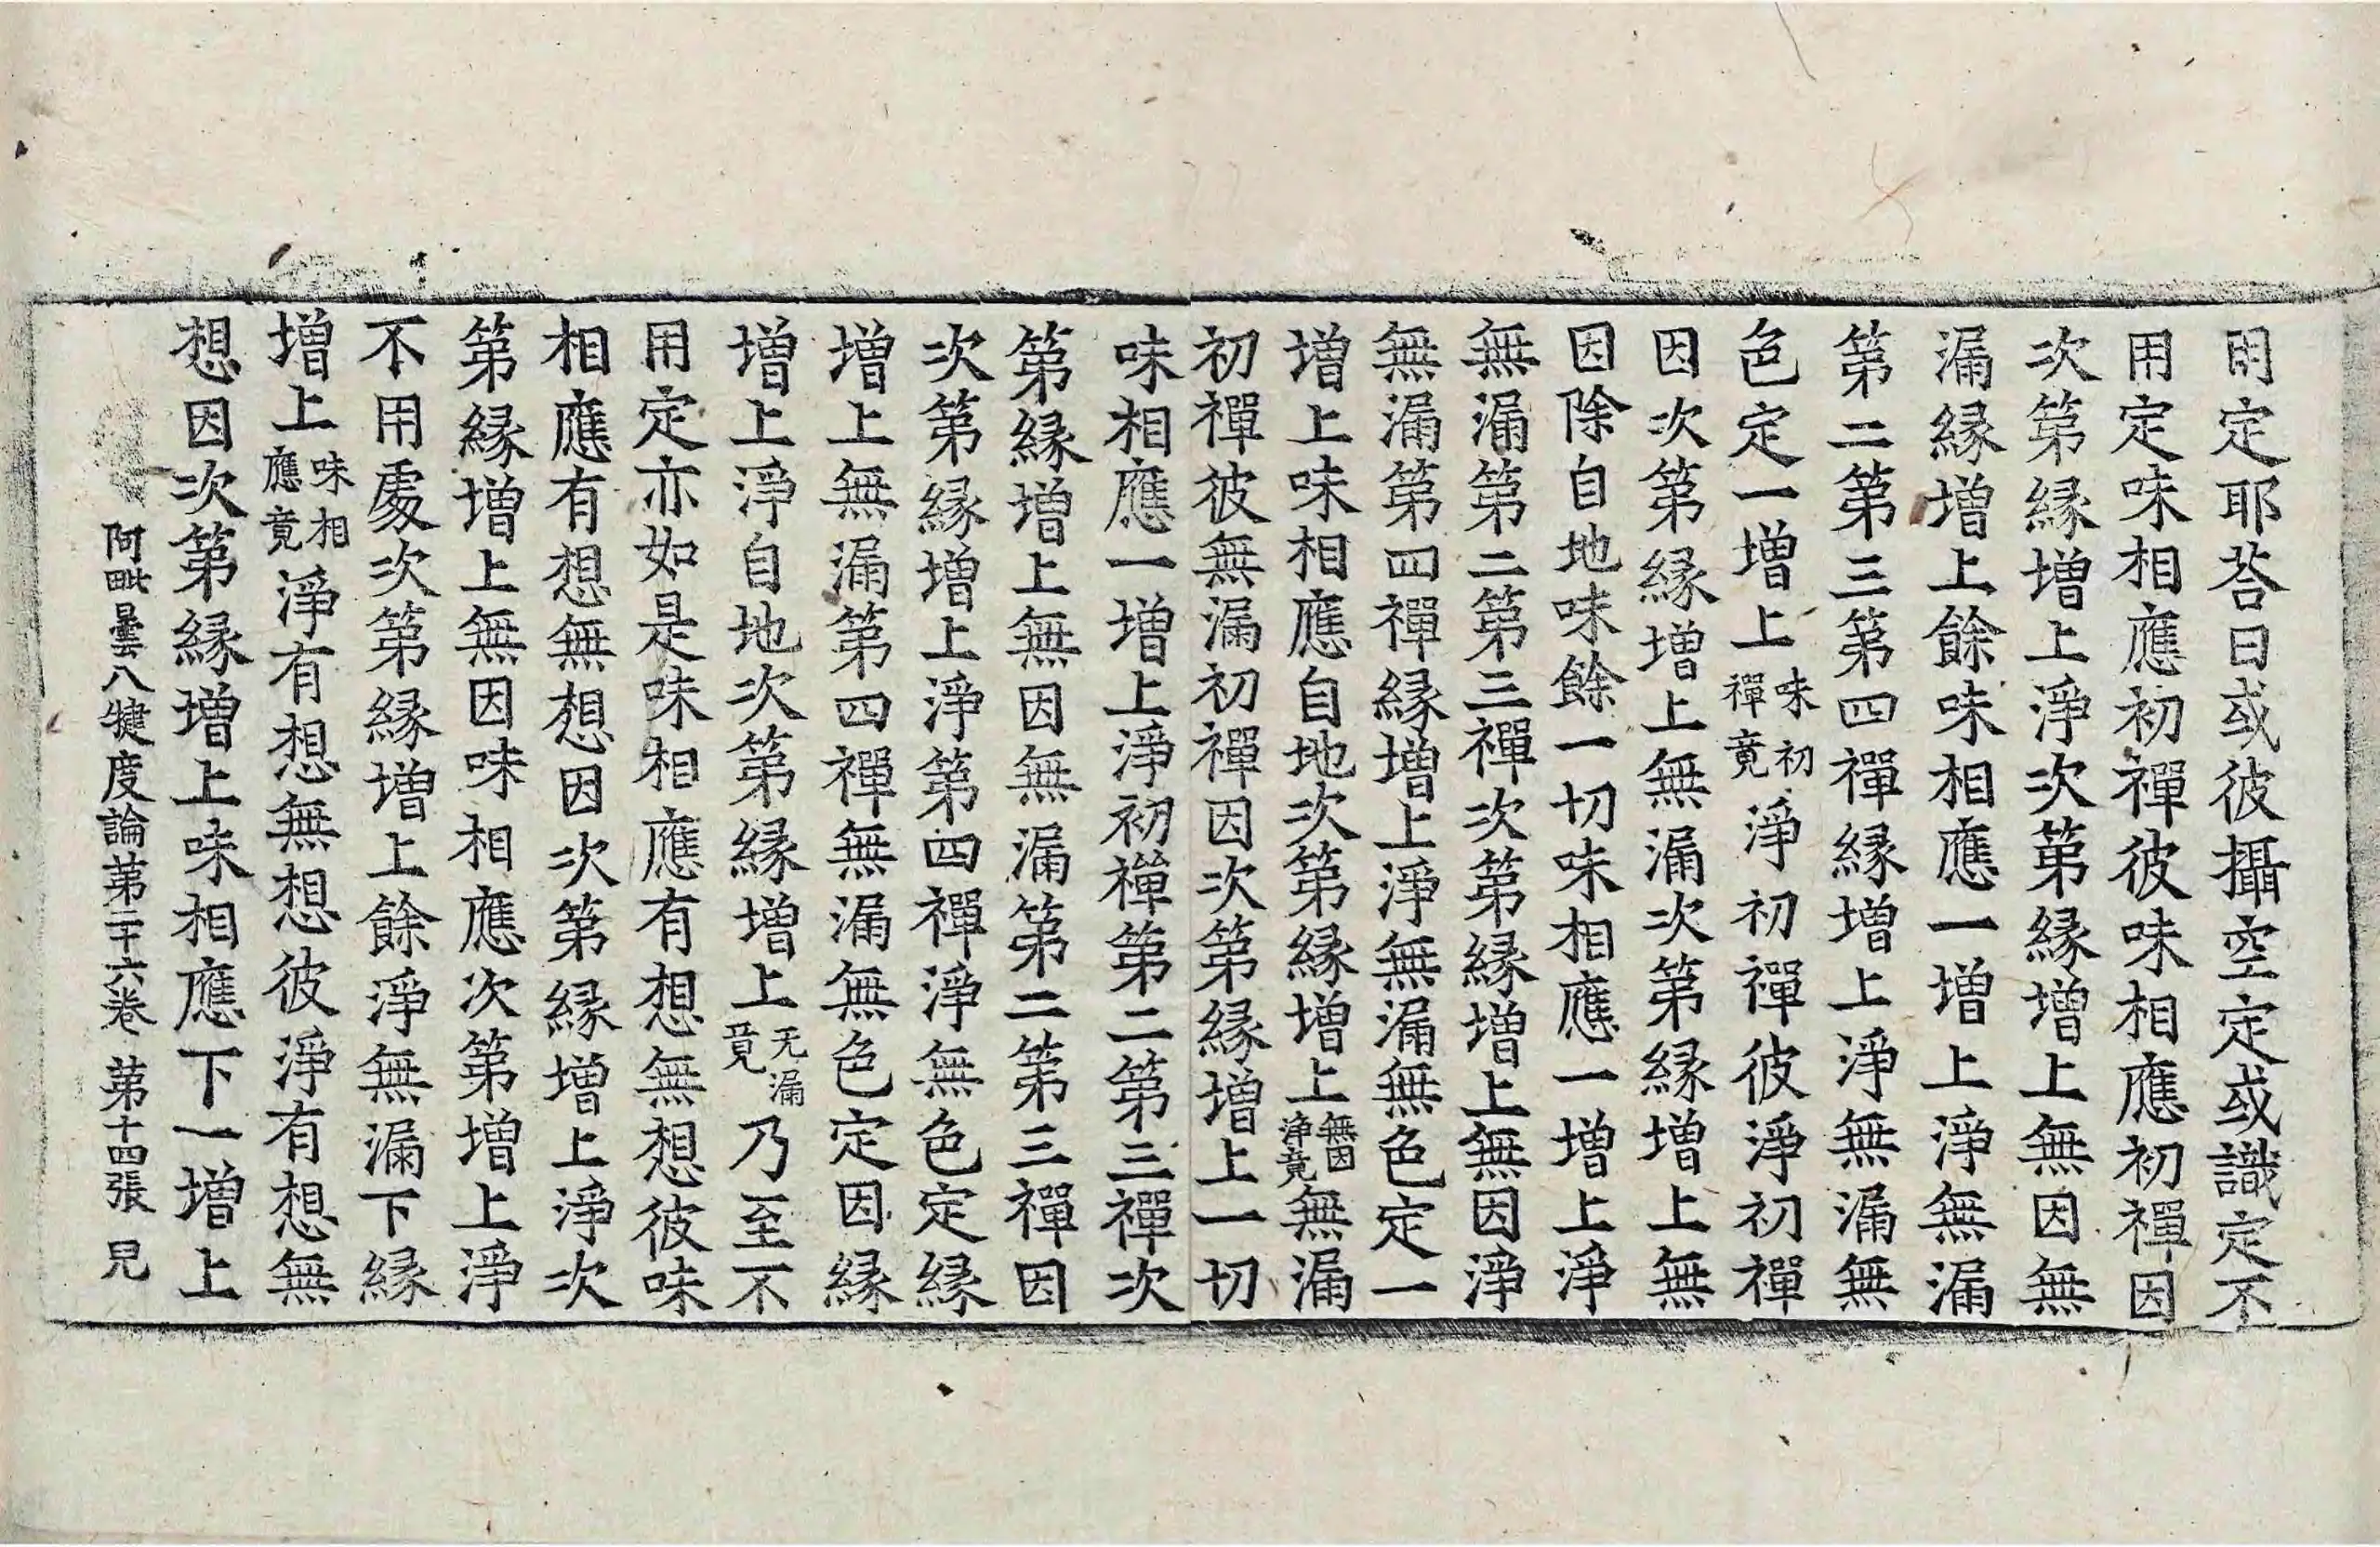 用定耶荅曰或彼攝空定或識定不
用定味相應初禪彼味相應初禪因
次第縁増上淨次第縁増上無因無
漏縁増上餘味相應一増上淨無漏
第二第三第四禪縁増上淨無漏無
色定一増上味初禪竟淨初禪彼淨初禪
因次第縁増上無漏次第縁増上無
因除自地味餘一切味相應一増上淨
無漏第二第三禪次第縁増上無因淨
無漏第四禪縁増上淨無漏無色定一
増上味相應自地次第縁増上無因淨竟無漏
初禪彼無漏初禪因次第縁増上一切
味相應一増上淨初禪第二第三禪次
第縁増上無因無漏第二第三禪因
次第縁増上淨第四禪淨無色定縁
増上無漏第四禪無漏無色定因縁
増上淨自地次第縁増上无漏竟乃至不
用定亦如是味相應有想無想彼味
相應有想無想因次第縁増上淨次
第縁増上無因味相應次第増上淨
不用處次第縁増上餘淨無漏下縁
増上味相應竟淨有想無想彼淨有想無
想因次第縁増上味相應下一増上
阿毗曇八犍度論第二十六卷 第十四張 兄